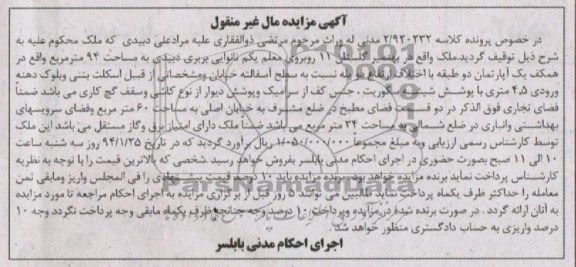 آگهی مزایده مال غیر منقول
در خصوص پرونده کلاسه ۲/۹۲۰۲۳۲ مدنی له وراث مرحوم مرتضی ذوالفقاری علیه مرادعلی دبیدی که ملک محکوم علیه به
شرح ذیل توقیف گردید.ملک واقع در بهنمیر گلستان ۱۱ روبروی معلم یکم نانوایی بربری دبیدی به مساحت ۹۴ مترمربع واقع در
همکف یک آپارتمان دو طبقه با اختلاف پله نسبت به سطح آسفالته خیابان ومشخصاتی از قبیل اسکلت بتنی وبلوک دهنه
ورودی ۴,۵ متری با پوشش شیشه سکوریت ، جنس کف از سرامیک وپوشش دیوار از نوع کاشی وسقف گچ کاری می باشد ضمناً
فضای تجاری فوق الذکر در دو قسمت فضای مطبخ در ضلع مشرف به خیابان اصلی به مساحت ۶۰ متر مربع وفضای سرویسهای
بهداشتی وانباری در ضلع شمالی به مساحت ۳۴ متر مربع می باشد ضمناً ملک دارای امتیاز برق وگاز مستقل می باشد این ملک
توسط کارشناس رسمی ارزیابی وبه مبلغ مجموعاً ۱/۰۵۰/۰۰۰/۰۰۰ ریال برآورد گردید که در تاریخ ۹۴/۱/۲۵ روز سه شنبه ساعت
۱۰ الی ۱۱ صبح بصورت حضوری در اجرای احکام مدنی بابلسر بفروش خواهد رسید .شخصی که بالاترین قیمت را با توجه به نظریه
کارشناس پرداخت نماید برنده مزایده خواهد بود. برنده مزایده باید ۱۰ درصد قیمت پیشنهادی را فی المجلس واریز ومابقی ثمن
معامله را حداکثر ظرف یکماه پرداخت نماید. طالبین می توانند ۵ روز قبل از برگزاری مزایده به اجرای احکام مراجعه تا مورد مزایده
به آنان ارائه گردد . در صورت برنده شدن در مزایده وپرداخت ۱۰ درصد وجه چنانچه ظرف یکماه مابقی وجه پرداخت نگردد وجه ۱۰
درصد واریزی به حساب دادگستری منظور خواهد شد
اجرای احکام مدنی بابلسر
ParsNamadData